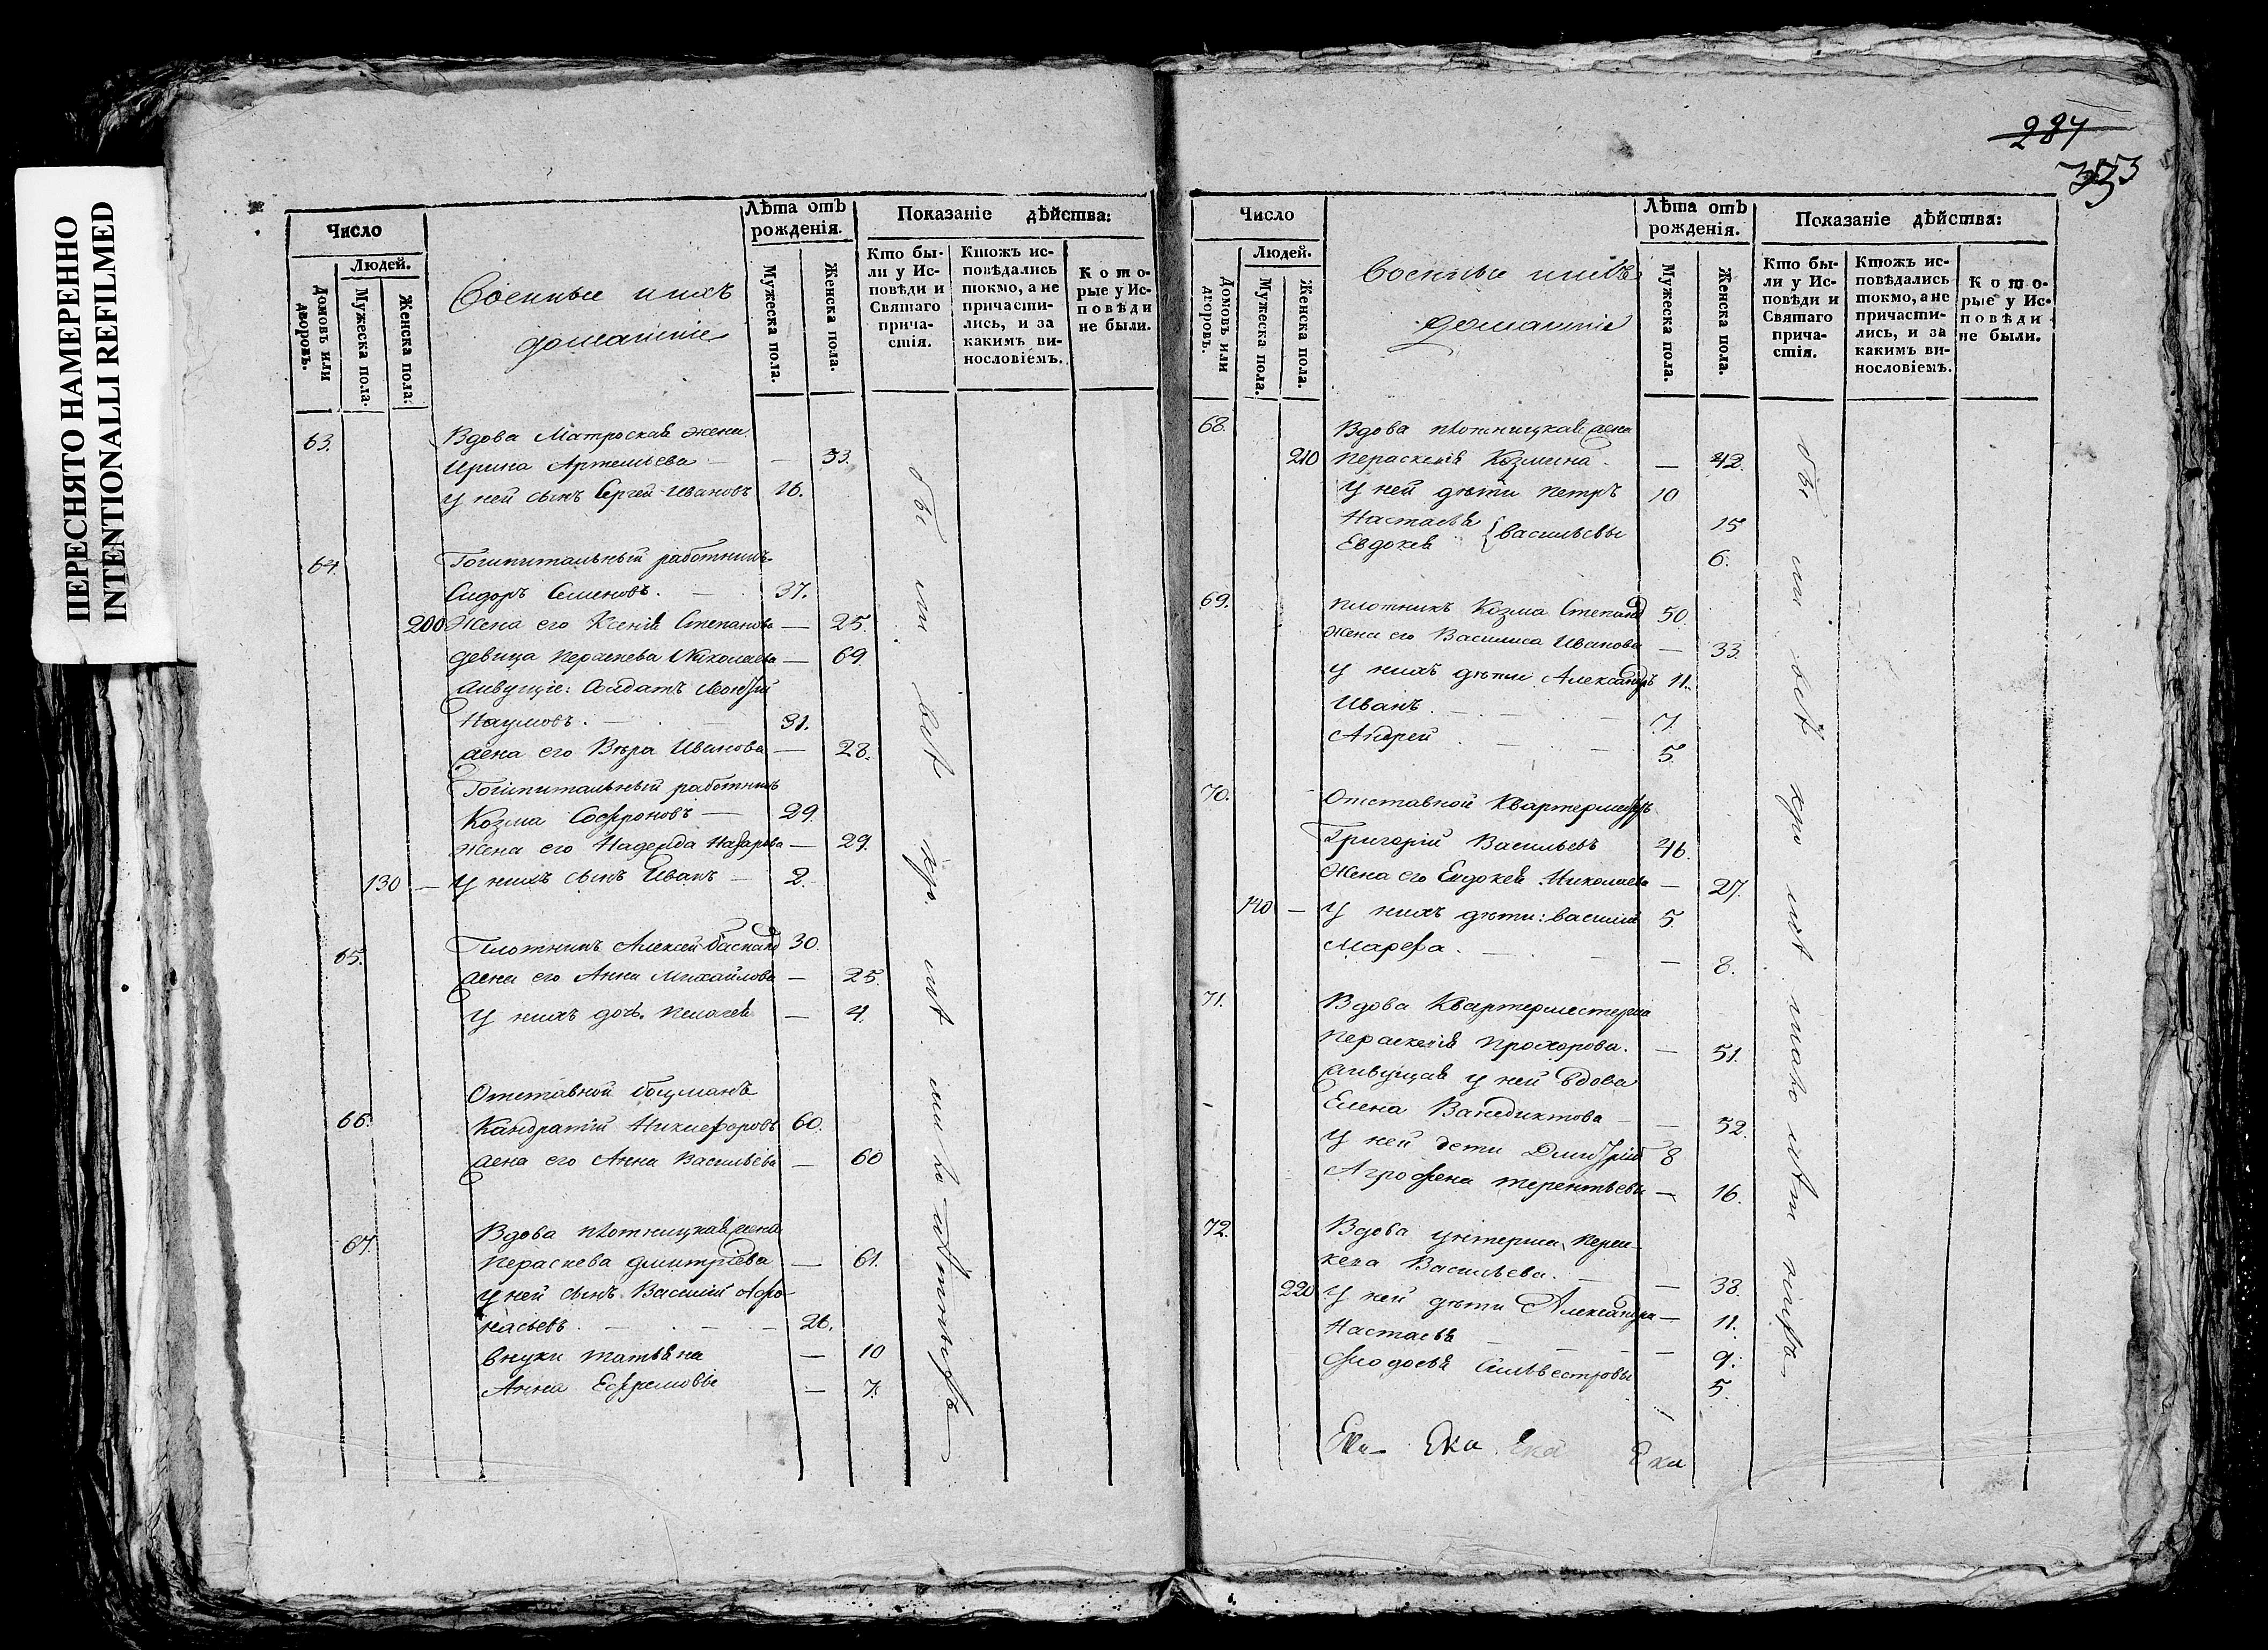 ПЕРЕСНЯТО НАМЕРЕННО
INTENTIONALLI REFILMED
Число
Людей.
Домовъ или дворовъ.
Мужеска пола.
Женска пола.
Военные и ихъ
домашніе
Лѣта отъ рожденія.
Мужеска пола.
Женска пола.
Показаніе дѣйства:
Кто бы-
ли у Ис-
повѣди и
Святаго
прича-
стія.
Ктожъ ис-
повѣдались
токмо, а не
причасти-
лись, и за
какимъ ви-
нословіемъ.
Кото-
рые у Ис-
повѣди
не были.
63. Вдова Матроская жена
Ирина Артемьева — 53.
у ней сынъ Сергей Ивановъ 16.
64. Гошпитальный работникъ
Сидоръ Семеновъ. — 37.
200 Жена его Ксенія Степанова — 25.
девица Пераскева Николаева — 69.
Живущіе: Солдатъ
Наумовъ. — 31.
жена его Вѣра Иванова — 28.
Гошпитальный работникъ
Козма Софроновъ — 29.
Жена его Надежда Назарова — 29.
130 — у нихъ сынъ Иванъ — 2.
65. Плотникъ Алексей 30.
жена его Анна Михайлова — 25.
У нихъ дочь Пелагея — 4.
Отставной боцманъ
66. Кандратій Никифоровъ 60.
жена его Анна Васильева — 60
67. Вдова плотницкая жена
Пераскева Дмитріева — 61.
у ней сынъ Василій Афо-
насьевъ. — 26.
внуки Татьяна — 10
Анна Ефремовы — 7.
287
353
Число
Людей.
Домовъ или дворовъ.
Мужеска пола.
Женска пола.
Военные и ихъ
домашніе
Лѣта отъ рожденія.
Мужеска пола.
Женска пола.
Показаніе дѣйства:
Кто бы-
ли у Ис-
повѣди и
Святаго
прича-
стія.
Ктожъ ис-
повѣдались
токмо, а не
причасти-
лись, и за
какимъ ви-
нословіемъ.
Кото-
рые у Ис-
повѣди
не были.
68. Вдова плотницкая жена
210 Пераскевія Козмина. — 42.
У ней дѣти Петръ 10
Настасья 15
Евдокея { Васильевы 6.
69. Плотникъ Козма Степанов 50.
Жена его Василиса Иванова — 33.
у нихъ дѣти Александръ 11.
Иванъ. — 7.
Андрей — 5.
70. Отставной Квартермейстръ
Григорій Васильевъ 46.
Жена его Евдокея Николаева — 27.
140 — у нихъ дѣти: Василій 5.
Марефа. — 8.
71. Вдова Квартерместерша
Пераскевія Прохорова. — 51.
живущая у ней вдова
Елена Ванедиктова — 52.
У ней дети Дмитрій 8
Агрофена Терентьевы — 16.
72. Вдова унтерша
Васильева. — 38.
220 У ней дѣти Александра — 11.
Настасья — 9.
Фіодосья Сильвестровы 5.
Ека Ека Ека Ека